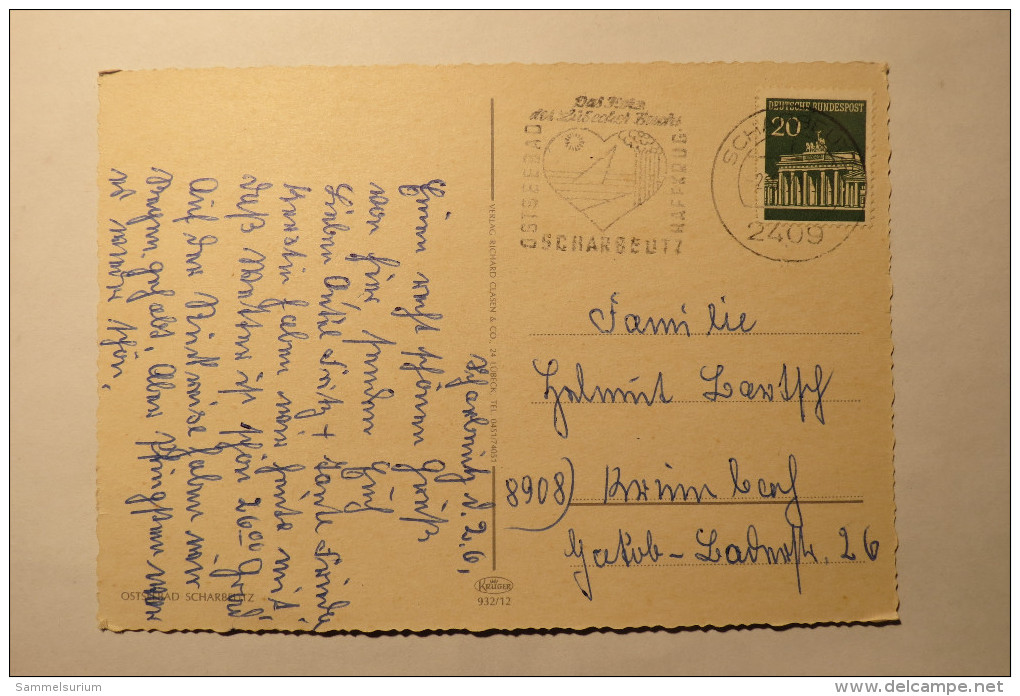 Das Herz
der Lübecker Bucht
OSTSEEBAD
HAFFKRUG
SCHARBEUTZ
DEUTSCHE BUNDESPOST
20
SCHARBEUTZ
2409
VERLAG RICHARD CLASEN & CO., 24 LÜBECK, TEL. 0451/74051
Scharbeutz d. 2.6.
Einen recht schönen Gruß
von hier senden Euch
Lieben Onkel Fritz + Tante Frieda
haben wir heute mit
daß Wetter ist schon 26 00 Grad
Auf der Hinreise haben wir
Regen gehabt, Aber Pfingsten war
es wieder schön.
Familie
Helmut Bartsch
8908) Krumbach
Jakob-Laderstr. 26
KRÜGER
932/12
OSTSEEBAD SCHARBEUTZ
Sammelsurium
www.delcampe.net